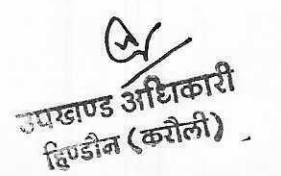 उपखण्ड अधिकारी
हिण्डौन (करौली)